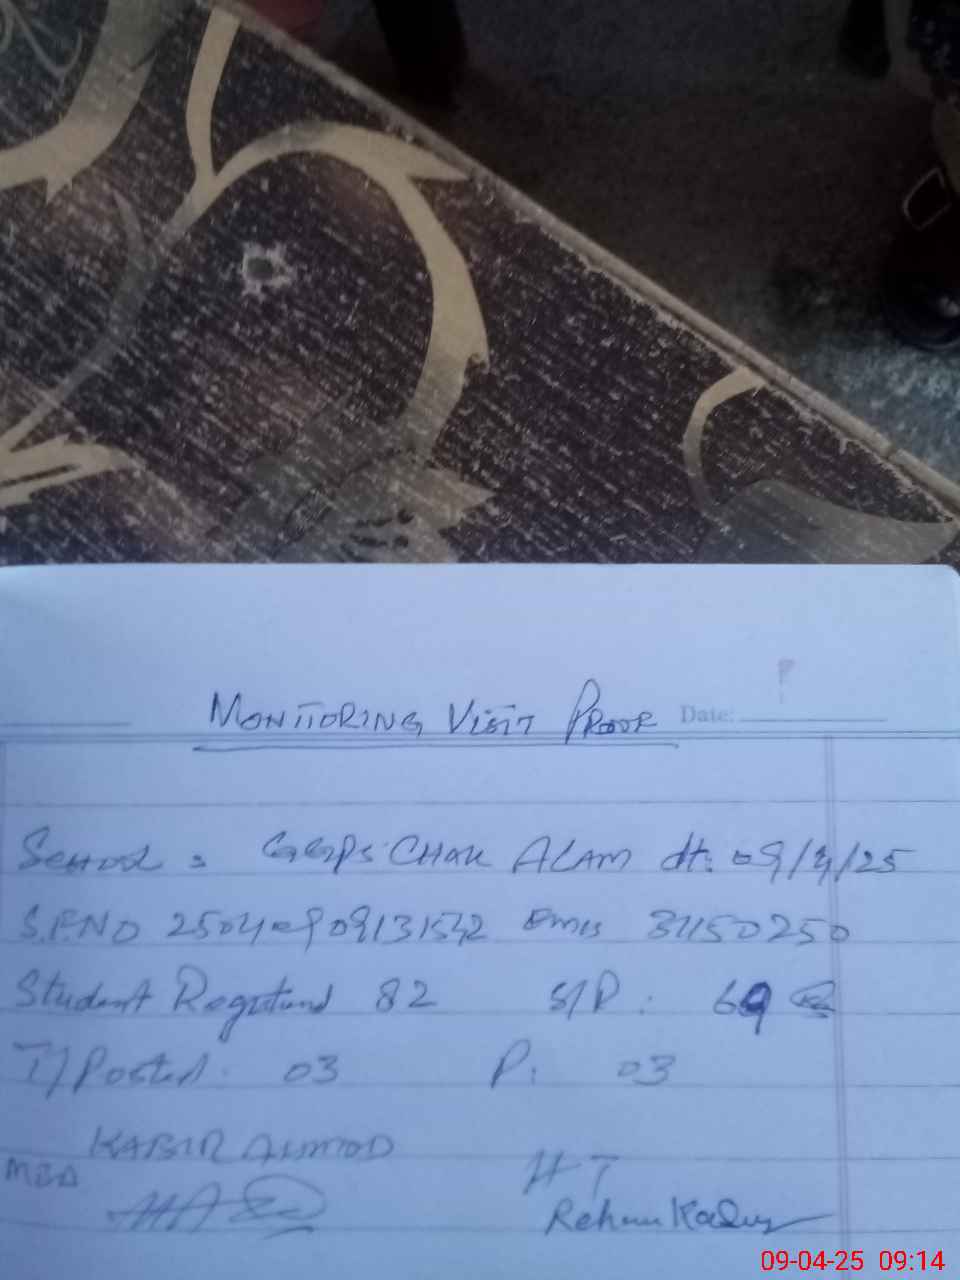 MONITORING VISIT PROOF Date:
School: GGPS CHAK ALAM dt: 09/4/25
S.P.NO Emis 31150250
Student Registered 82 S/P: 69
T/Posted. 03 P: 03
KABIR AHMAD
MEA HT
Rehan
09-04-25 09:14